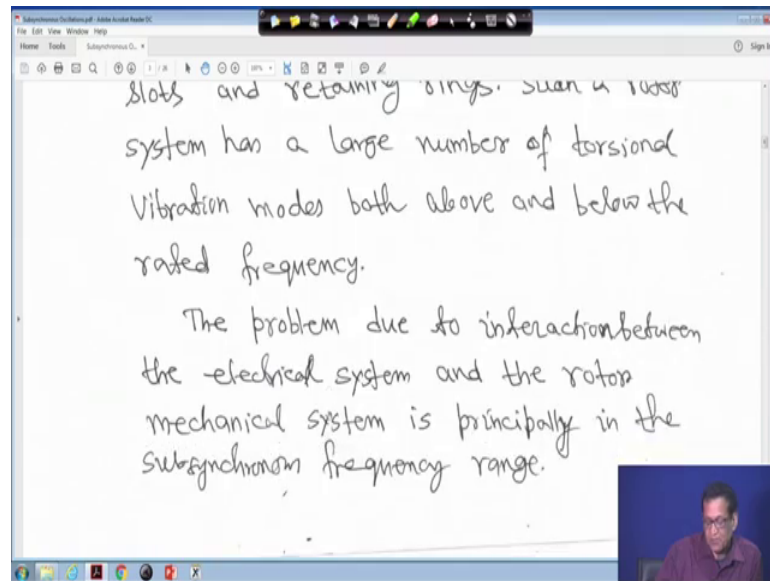 Subsynchronous Oscillations.pdf - Adobe Acrobat Reader DC
File Edit View Window Help
Home Tools Subsynchronous O... ×
Sign I
slots and retaining rings. Such a rotor
system has a large number of torsional
vibration modes both above and below the
rated frequency.
The problem due to interaction between
the electrical system and the rotor
mechanical system is principally in the
subsynchronous frequency range.